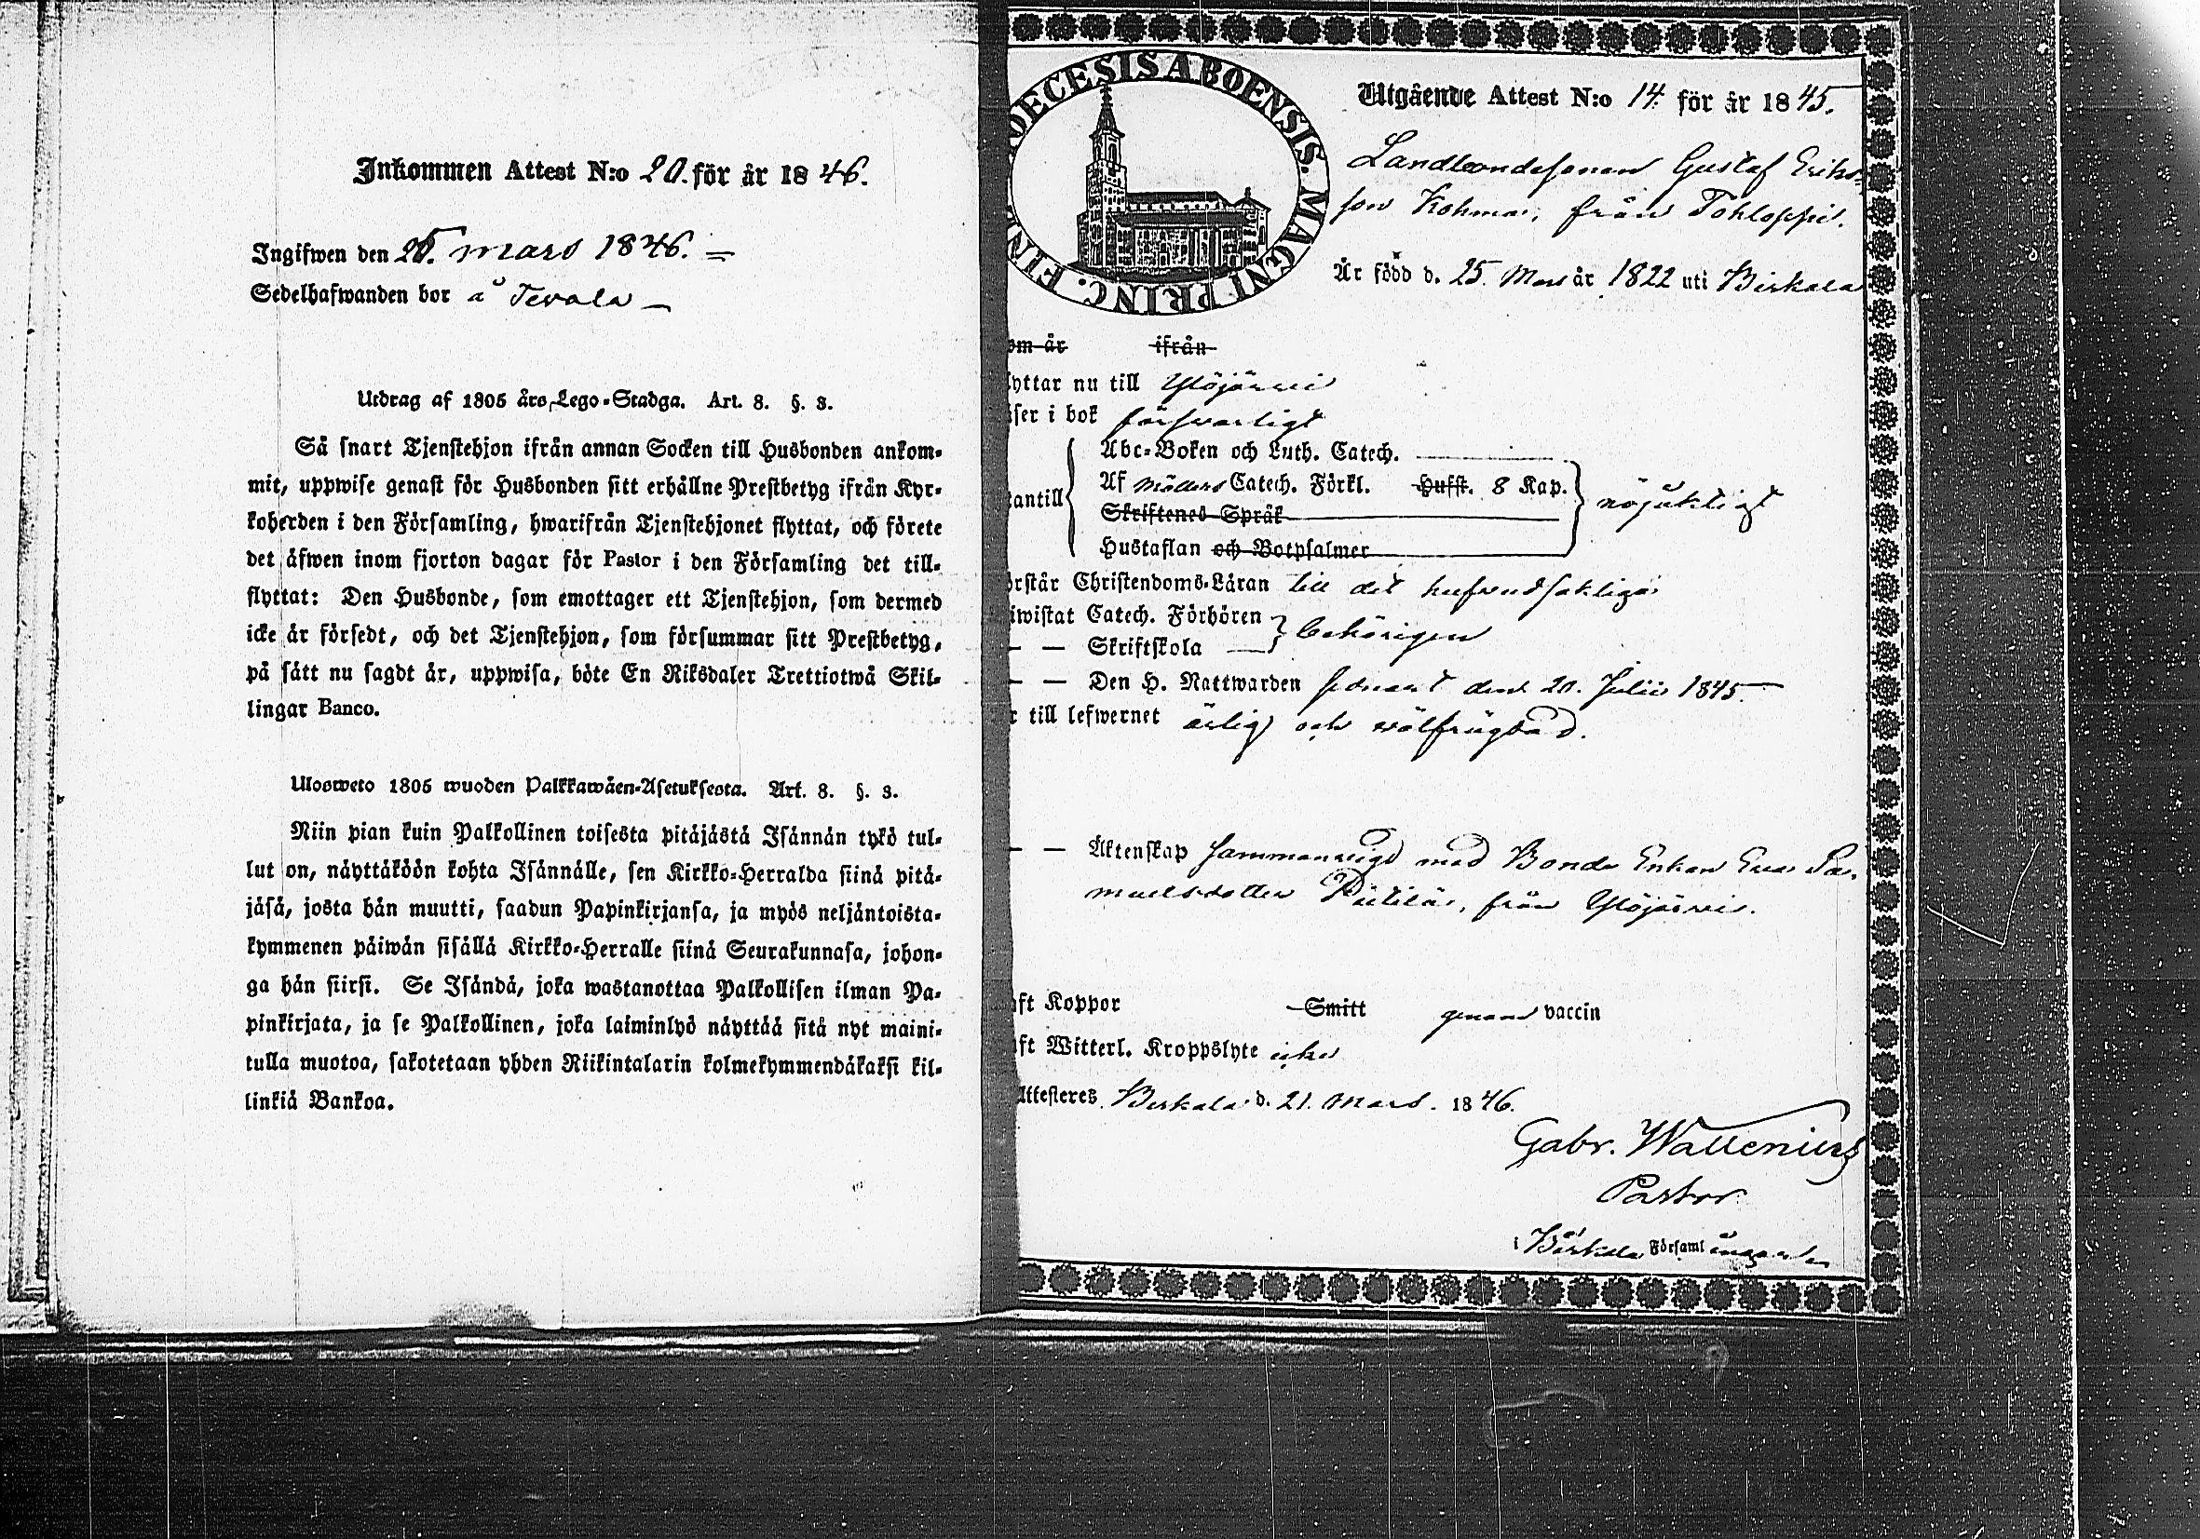 Inkommen Attest N:o 20. för år 1846.
Ingifwen den 25. mars 1846. =
Sedelhafwanden bor å Tevala —
Utdrag af 1805 års Lego-Stadga. Art. 8. §. 3.
Så snart Tjenstehjon ifrån annan Socken till Husbonden ankom-
mit, uppwise genast för Husbonden sitt erhållne Prestbetyg ifrån Kyr-
koherden i den Församling, hwarifrån Tjenstehjonet flyttat, och förete
det äfwen inom fjorton dagar för Pastor i den Församling det till-
flyttat: Den Husbonde, som emottager ett Tjenstehjon, som dermed
icke är försedt, och det Tjenstehjon, som försummar sitt Prestbetyg,
på sätt nu sagdt är, uppwisa, böte En Riksdaler Trettiotwå Skil-
lingar Banco.
Ulosweto 1805 wuoden Palkkawäen-Asetuksesta. Art. 8. §. 3.
Niin pian kuin Palkollinen toisesta pitäjästä Isännän tykö tul-
lut on, näyttäköön kohta Isännälle, sen Kirkko-Herralda siinä pitä-
jäsä, josta hän muutti, saadun Papinkirjansa, ja myös neljäntoista-
kymmenen päiwän sisällä Kirkko-Herralle siinä Seurakunnasa, johon-
ga hän siirsi. Se Isändä, joka wastanottaa Palkollisen ilman Pa-
pinkirjata, ja se Palkollinen, joka laiminlyö näyttää sitä nyt maini-
tulla muotoa, sakotetaan yhden Riikintalarin kolmekymmendäkaksi kil-
linkiä Bankoa.
DECESIS ABOENSIS. MAGNI PRINC. FIN
Utgående Attest N:o 14. för år 1845.
Landbondesonen Gustaf Eriks-
son Kohmai, från Tohloppi.
Är född d. 25. Mars år 1822 uti Birkala
om år ifrån
lyttar nu till Ylöjärvi
äser i bok försvarligt
Abc-Boken och Luth. Catech.
Af Möllers Catech. Förkl. Husst. 8 Kap.
antill nöjaktigt
Skriftenes Språk
Hustaflan och Botpsalmer
örstår Christendoms-Läran till det hufvudsakliga
iwistat Catech. Förhören
behörigen
— — Skriftskola
— — Den H. Nattwarden sednast den 20. Julii 1845.
r till lefwernet ärlig och wälfrägdad.
— — Äktenskap sammanvigd med Bonde Enkan Eva Sa-
muelsdotter Pietilä, från Ylöjärvi.
aft Koppor Smitt genom vaccin
aft Witterl. Kroppslyte icke
Attesteres Birkala d. 21. Mars. 1846.
Gabr. Wallenius
Pastor
i Birkala Församl